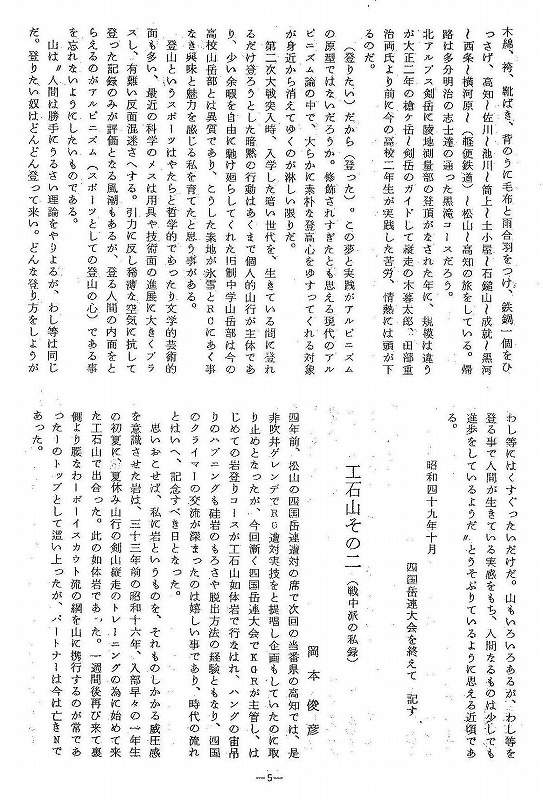 木綿、袴、靴ばき、背のうに毛布と雨合羽をつけ、鉄鍋一個をひ
っさげ、高知～佐川～池川～筒上～土小屋～石鎚山～成就～黒河
～西条～横河原～（軽便鉄道）～松山～高知の旅をしている。帰
路は多分明治の志士達の通った黒滝コースだろう。
北アルプス剣岳に陵地測量部の登頂がなされた年に、規模は違う
が大正二年の槍ヶ岳～剣岳のガイドして縦走の木暮太郎、田部重
治両氏より前に今の高校二年生が実践した苦労、情熱には頭が下
るのだ。
（登りたい）だから（登った）。この夢と実践がアルピニズム
の原型ではないだろうか。修飾されすぎたとも思える現代のアル
ピニズム論の中で、大らかに素朴な登高心をゆすってくれる対象
が身近から消えてゆくのが淋しい限りだ。
第二次大戦突入時、入学した暗い世代を、生きている間に登れ
るだけ登ろうとした暗黙の行動はあくまで個人的山行が主体であ
り、少い余暇を自由に馳け廻らしてくれた旧制中学山岳部は今の
高校山岳部とは異質であり、こうした素地が氷雪とRCにあく事
なき興味と魅力を感じる私を育てたと思う事がある。
登山というスポーツはやたらと哲学的であったり文学的芸術的
面も多い、最近の科学のメスは用具や技術面の進展に大きくプラ
スし、有難い反面混迷さへする。引力に反し稀薄な空気に抗して
登った記録のみが評価となる風潮もあるが、登る人間の内面をと
らえるのがアルピニズム（スポーツとしての登山の心）である事
を忘れないようにしたいものである。
山は〝人間は勝手にうるさい理論をやりよるが、わし等は同じ
だ。登りたい奴はどんどん登って来い。どんな登り方をしようが
わし等にはくすぐったいだけだ。山もいろいろあるが、わし等を
登る事で人間が生きている実感をもち、人間なるものは少しでも
進歩をしているようだ〟とうそぶりているように思える近頃であ
る。
昭和四十九年十月
四国岳連大会を終えて　記す
工石山その二（戦中派の私録）
岡本俊彦
四年前、松山の四国岳連遭対の席で次回の当番県の高知では、是
非吹井ゲレンデでRG遭対実技をと提唱し企画もしていたのに取
り止めとなったが、今回漸く四国岳連大会でKGRが主管し、は
じめての岩登りコースが工石山如体岩で行なはれ、ハングの宙吊
りのハプニングも硅岩のもろさや脱出方法の経験ともなり、四国
のクライマーの交流が深まったのは嬉しい事であり、時代の流れ
とはいへ、記念すべき日となった。
思いおこせば、私に岩というものを、それものしかかる威圧感
を意識させた岩は、三十三年前の昭和十六年、入部早々の一年生
の初夏に、夏休み山行の剣山縦走のトレーニングの為に始めて来
た工石山で出合った。此の如体岩であった。一週間後再び来て裏
側より腰なわーボーイスカウト流の綱を山に携行するのが常であ
ったーのトップとして這い上ったが、パートナーは今は亡きNで
あった。
—5—